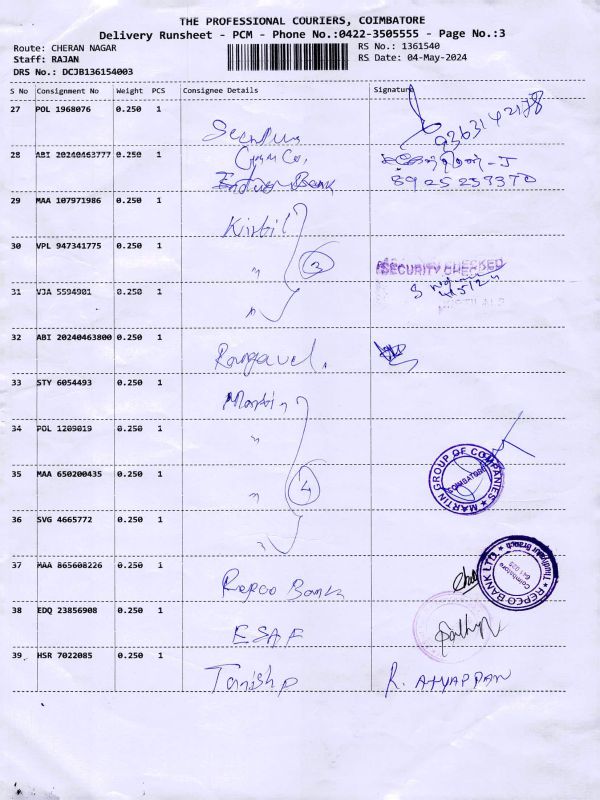 THE PROFESSIONAL COURIERS, COIMBATORE
Delivery Runsheet - PCM - Phone No.:0422-3505555 - Page No.:3
Route: CHERAN NAGAR
RS No.: 1361540
Staff: RAJAN
RS Date: 04-May-2024
DRS No.: DCJB136154003
S No Consignment No Weight PCS Consignee Details Signature
27 POL 1968076 0.250 1
9363142178
28 ABI 20240463777 0.250 1
Bank
8925259370
29 MAA 107971986 0.250 1
30 VPL 947341775 0.250 1 "
3
SECURITY CHECKED
31 VJA 5594901 0.250 1 "
32 ABI 20240463800 0.250 1
Rangavel.
33 STY 6054493 0.250 1
Martin
34 POL 1209019 0.250 1 "
MARTIN GROUP OF COMPANIES
COIMBATORE
35 MAA 650200435 0.250 1 "
4
36 SVG 4665772 0.250 1 "
37 MAA 865608226 0.250 1
Repco Bank
REPCO BANK LTD.
Thudiyalur Branch
Coimbatore
38 EDQ 23856908 0.250 1
ESAF
39 HSR 7022085 0.250 1
Tanishq
R. AIYAPPAN